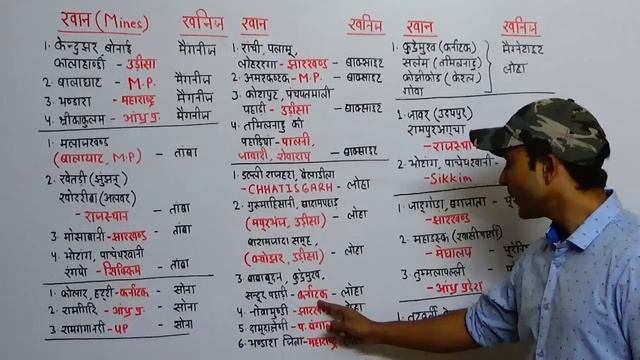 खान (Mines) खनिज
1. केन्दुझर बोनाई मैगनीज
कालाहांडी - उड़ीसा
2. बालाघाट - M.P. - मैगनीज
3. भण्डारा - महाराष्ट्र मैगनीज
4. श्रीकाकुलम - आंध्र प्र. मैगनीज
1. मलाजखण्ड
(बालाघाट, M.P.) - तांबा
2. खेतड़ी (झुंझनू)
खोदरीबा (अलवर)
- राजस्थान - तांबा
3. मोसाबानी - झारखण्ड - तांबा
4. भोटांग, पाचेयखानी
रंगपो - सिक्किम - तांबा
1. कोलार, हट्टी - कर्नाटक - सोना
2. रामगिरि - आंध्र प्र. - सोना
3. रामगगानरी - UP - सोना
खान खनिज
1. रांची, पलामू,
लोहरदगा - झारखण्ड - बाक्साइट
2. अमरकण्टक - M.P. - बाक्साइट
3. कोरापुट, पंचपतमाली
पहाड़ी - उड़ीसा - बाक्साइट
4. तमिलनाडु की
पहाड़ियां - पालनी,
जावारी, शेवाराय - बाक्साइट
1. डल्ली राजहरा, बैलाडीला
- CHHATISGARH - लोहा
2. गुरुमाहिसानी, बादामपहाड़
(मयूरभंज, उड़ीसा) - लोहा
बारामजादा समूह,
(क्योंझर, उड़ीसा) - लोहा
3. बाबाबूदन, कुद्रेमुख,
सन्दूर पहाड़ी - कर्नाटक - लोहा
4. नोवामुण्डी - झार
5. दामूदा श्रेणी - प. बंगाल
6. भण्डारा जिला - महाराष्ट्र
खान खनिज
1. कुद्रेमुख (कर्नाटक) मैग्नेटाइट
सलेम (तमिलनाडु) लोहा
कोझीकोड (केरल)
गोवा
1. जावर (उदयपुर)
रामपुर आगुचा
- राजस्
2. भोटांग, पाचेयखानी -
- Sikkim
1. जादूगोड़ा, बगजाला - यू
- झारखण्ड
2. महाडेक (खासी पहाड़ी)
- मेघालय - यूरेनि
3. तुम्मलापल्ली
- आंध्र प्रदेश